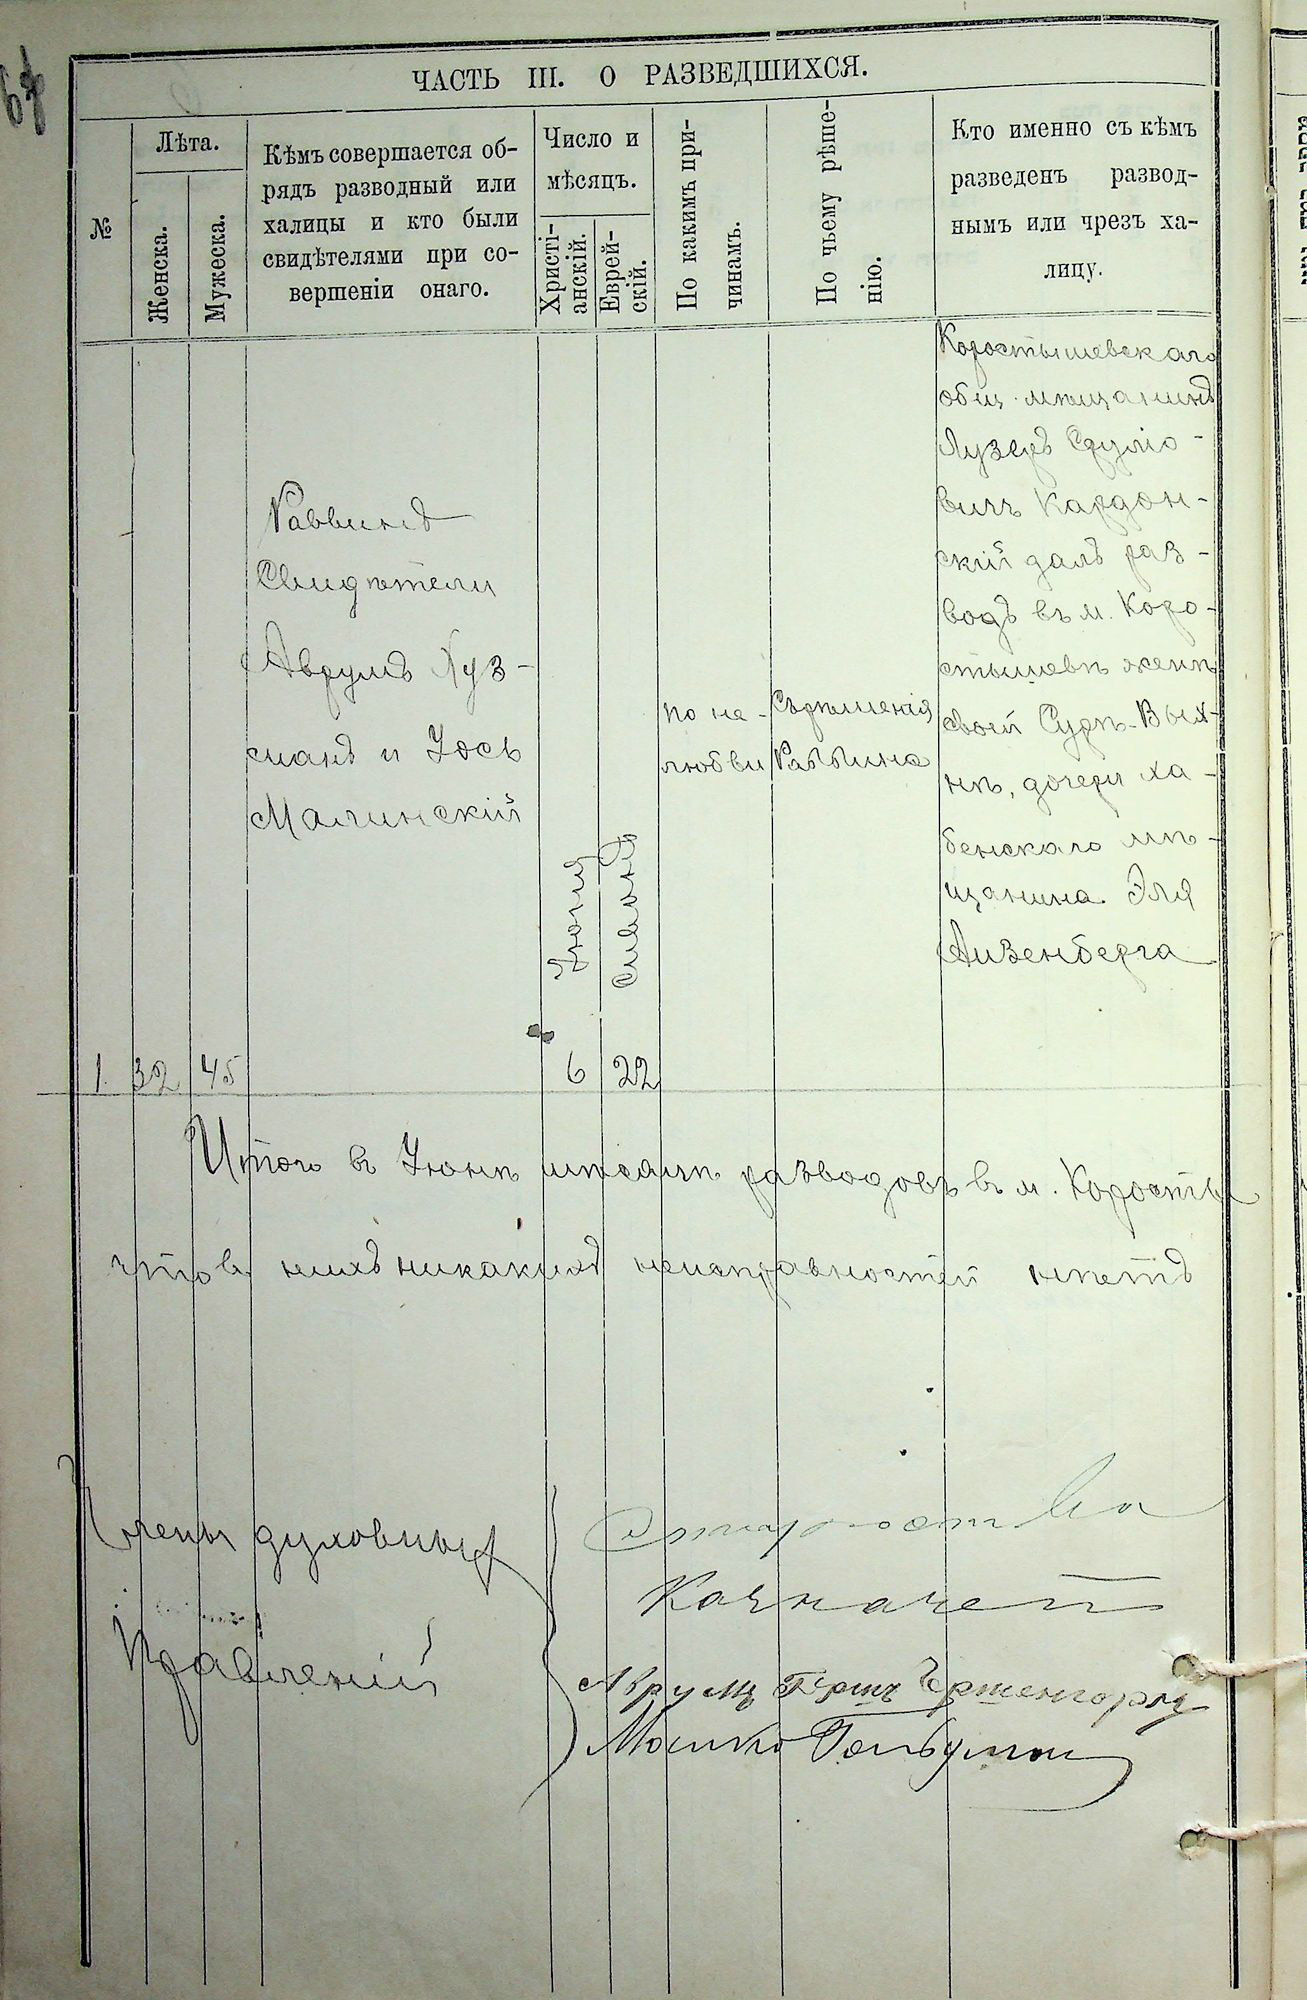 ЧАСТЬ III. О РАЗВЕДШИХСЯ.
№
Лѣта.
Женска.
Мужеска.
Кѣмъ совершается об-
рядъ разводный или
халицы и кто были
свидѣтелями при со-
вершеніи онаго.
Число и
мѣсяцъ.
Христі-
анскій.
Еврей-
скій.
По какимъ при-
чинамъ.
По чьему рѣше-
нію.
Кто именно съ кѣмъ
разведенъ развод-
нымъ или чрезъ ха-
лицу.
1
32
45
Раввинъ
Свидѣтели
Аврумъ Хуз-
манъ и Іось
Малинскій
Іюня
6
Сивана
22
По не-
любви
Съ рѣшенія
Раввина
Коростышевскаго
общ. мѣщанинъ
Лузеръ Сруліо-
вичъ Кардон-
скій далъ раз-
водъ въ м. Коро-
стышевѣ женѣ
своей Сурѣ-Вых-
нѣ, дочери Ха-
бенскаго мѣ-
щанина Эля
Айзенберга
Итого въ Іюнѣ мѣсяцѣ разводовъ въ м. Коросты
что въ нихъ никакихъ неисправностей нѣтъ
Члены духовныхъ
Правленій
Староста
Казначей
Аврумъ Гершъ
Мошко